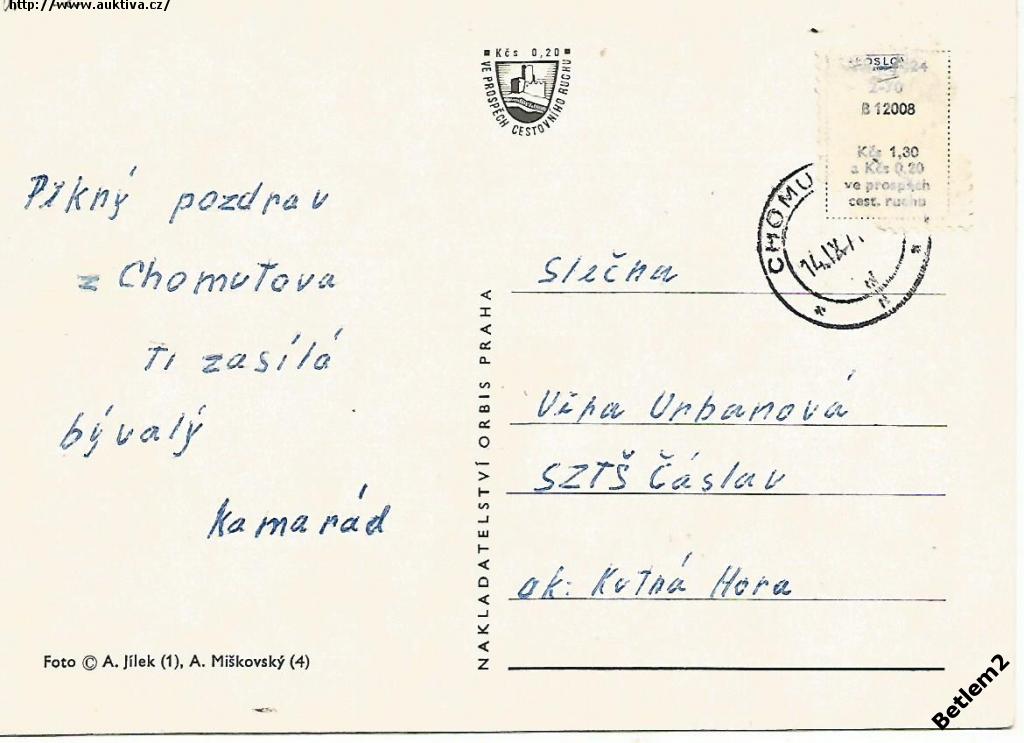 http://www.auktiva.cz/
Kčs 0,20
VE PROSPĚCH CESTOVNÍHO RUCHU
B 12008
Kčs 1,30
a Kčs 0,20
ve prospěch
cest. ruchu
CHOMU
14.IX.7
Pěkný pozdrav
z Chomutova
Ti zasílá
bývalý
kamarád
Slečna
Věra Urbanová
SZTŠ Čáslav
ok: Kutná Hora
NAKLADATELSTVÍ ORBIS PRAHA
Foto © A. Jílek (1), A. Miškovský (4)
Betlem2